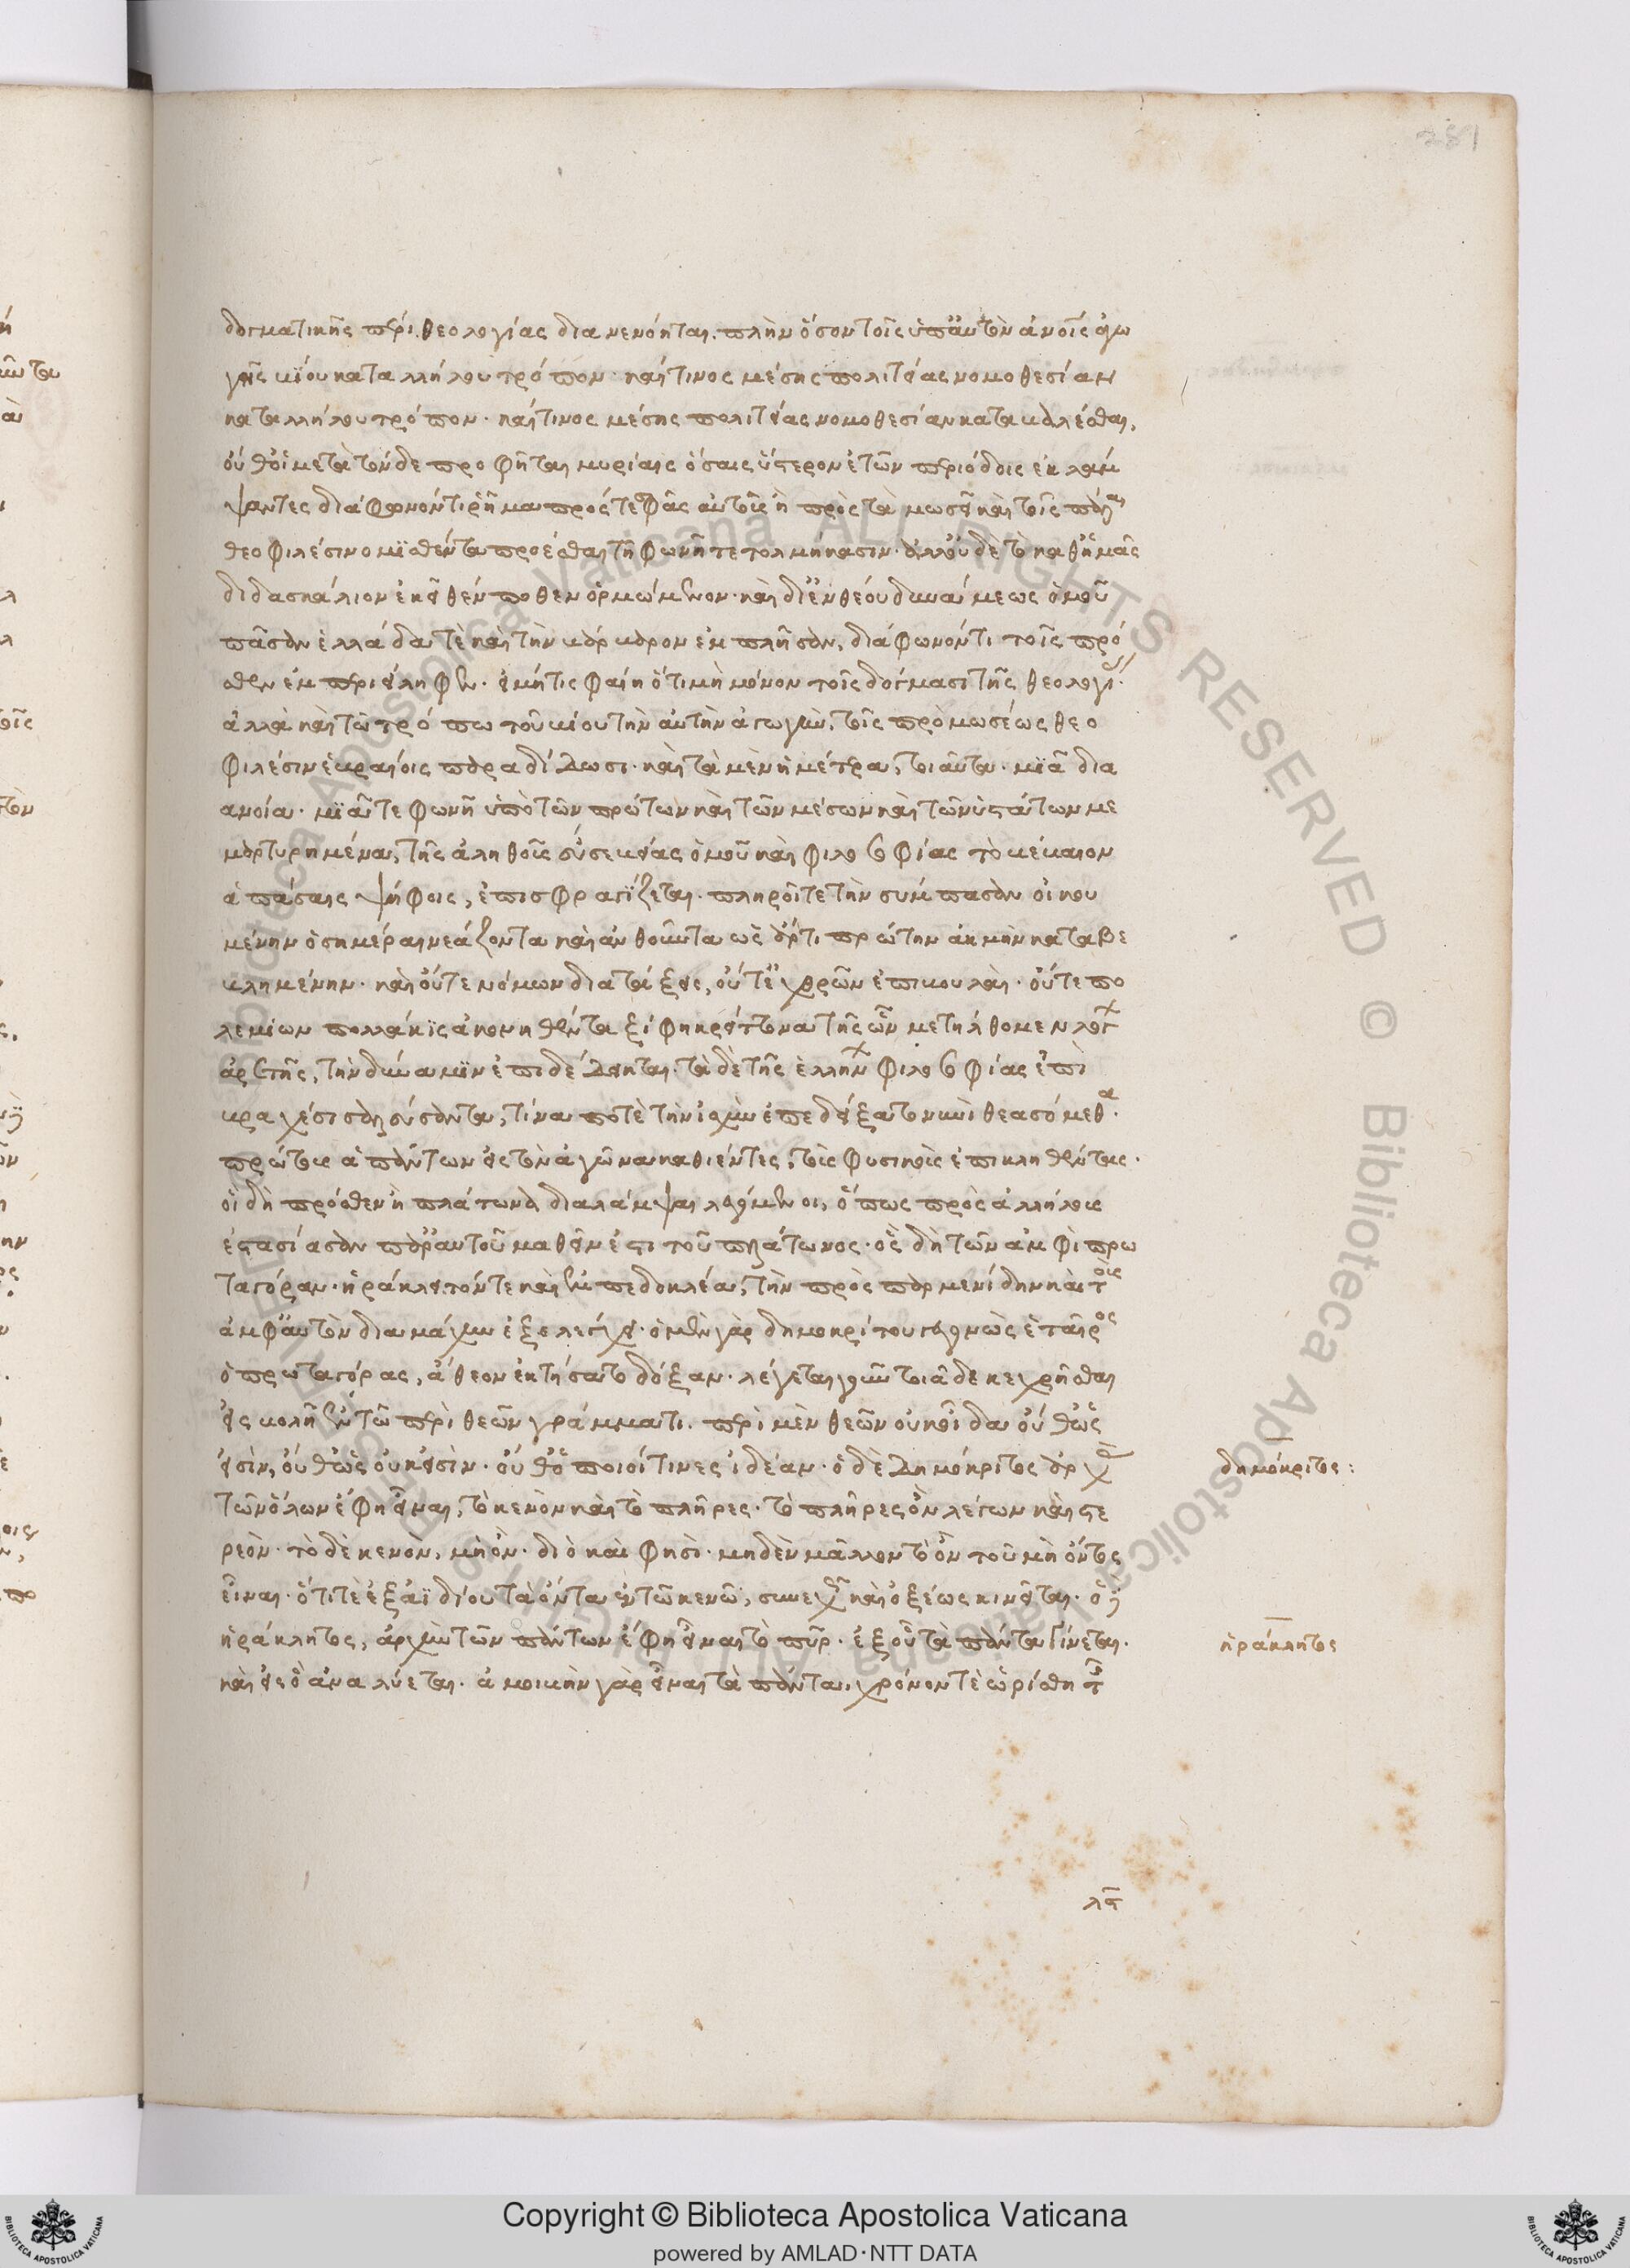 281
δογματικῆς περὶ θεολογίας διανενόηται. πλὴν ὅσον τοῖς ὑπ' αὐτὸν ἀνοῖς ἀγω
γῆς βίου καταλλήλου τρόπον· καί τινος μέσης πολιτείας νομοθεσίαν
καταλλήλου τρόπον· καί τινος μέσης πολιτείας νομοθεσίαν καταβαλέσθαι,
οὐθ' οἱ μετὰ τόνδε προφῆται μυρίαις ὅσαις ὕστερον ἐτῶν περιόδοις ἐκλάμ
ψαντες διάφωνόν τι ῥῆμα πρός τε σφᾶς αὐτοὺς ἢ πρὸς τὰ μωσεῖ καὶ τοῖς πάλαι
θεοφιλέσιν ομϊσθέντα προέσθαι τῇ φωνῇ τετολμήκασιν· ἀλλ' οὐδὲ τὸ καθ' ἡμᾶς
διδασκάλιον ἐκεῖθέν ποθεν ὁρμώμενον· καὶ δι' ἐνθέου δυνάμεως ὁμοῦ
πᾶσαν ἑλλάδα τὲ καὶ τὴν βάρβαρον ἐμπλῆσαν, διάφωνόν τι τοῖς πρό
σθεν ἐμπεριείληφεν. εἰ μή τις φαίη ὅτι μὴ μόνον τοῖς δόγμασι τῆς θεολογί
ἀλλὰ καὶ τῷ τρόπω τοῦ βίου τὴν αὐτὴν ἀγωγὴν, τοῖς πρὸ μωσέως θεο
φιλέσιν ἑβραίοις παραδίδωσι· καὶ τὰ μὲν ἡμέτρα, τοιαῦτα· μϊᾶ δια
ανοία· μϊᾶ τε φωνῇ ὑπὸ τῶν πρώτων καὶ τῶν μέσων καὶ τῶν ὑστάτων με
μαρτυρημένα, τῆς ἀληθοῦς εὐσεβείας ὁμοῦ καὶ φιλοσοφίας τὸ βέβαιον
ἁπάσαις ψήφοις, ἐπισφραγίζεται. πληροῖ τε τὴν σύμπασαν οἰκου
μένην ὁσημέραι νεάζοντα καὶ ἀνθοῦντα ὡς ἄρτι πρώτην ἀκμὴν καταβε
βλημένην· καὶ οὔτε νόμων διατάξεις, οὔτ' ἐχθρῶν ἐπιβουλαὶ· οὔτε πο
λεμίων πολλάκϊς ἀκονηθέντα ξίφη κρείττονα τῆς ὧν μετήλθομεν λογ
ἀρετῆς, τὴν δύναμϊν ἐπιδέδεικται. τὰ δὲ τῆς ἑλλήν φιλοσοφίας ἐπὶ
βραχέσι σαλεύσαντα, τίνα ποτὲ τὴν ἰσχὺν ἐπεδείξατο νυνὶ θεασόμεθα.
πρώτους ἁπάντων εἰς τὸν ἀγῶνα καθιέντες, τοὺς φυσικοὺς ἐπικληθέντας.
οἱ δὴ πρόσθεν ἢ πλάτωνα διαλάμψαι λεγόμενοι, ὅπως πρὸς ἀλλήλους
ἐστασίασαν παρ' αὐτοῦ μαθεῖν ἔστι τοῦ πλάτωνος· ὃς δὴ τῶν ἀμφὶ πρω
ταγόραν· ἡράκλειτόν τε καὶ ἐμπεδοκλέα, τὴν πρὸς παρμενίδην καὶ τοὺς
ἀμφ' αὐτὸν διαμάχην ἐξελέγχει· ὁ μὲν γὰρ δημοκρίτου γεγονὼς ἑταῖρος
ὁ πρωταγόρας, ἄθεον ἐκτήσατο δόξαν. λέγεται γοῦν τοιᾶδε κεχρῆσθαι
εἰσβολῇ ἐν τῶ περὶ θεῶν γράμματι. περὶ μὲν θεῶν οὐκ οἶδα οὔθ' ὡς
εἰσὶν, οὔθ' ὡς οὐκ εἰσὶν· οὔθ' ὁποῖοί τινες ἰδέαν· ὁ δὲ Δημόκριτος ἀρχὰς
τῶν ὅλων ἔφη εἶναι, τὸ κενὸν καὶ τὸ πλῆρες· τὸ πλῆρες ὂν λέγων καὶ στε
ρεὸν· τὸ δὲ κενὸν, μὴ ὄν· διὸ καὶ φησὶ· μηδὲν μᾶλλον τὸ ὂν τοῦ μὴ ὄντος
εἶναι· ὅτι τὲ ἐξ ἀϊδίου τὰ ὄντα ἐν τῶ κενῶ, συνεχῆ καὶ ὀξέως κινεῖται. ὁ δὲ
ἡράκλητος, ἀρχὴν τῶν πάντων ἔφη εἶναι τὸ πῦρ. ἐξ οὗ τὰ πάντα γίνεται.
καὶ εἰς ὃ ἀναλύεται. ἀμοιβὴν γὰρ εἶναι τὰ πάντα, χρόνον τὲ ὡρίσθη τῆς
δημόκριτος:
ἡράκλητος
λϛ
Copyright © Biblioteca Apostolica Vaticana
powered by AMLAD·NTT DATA